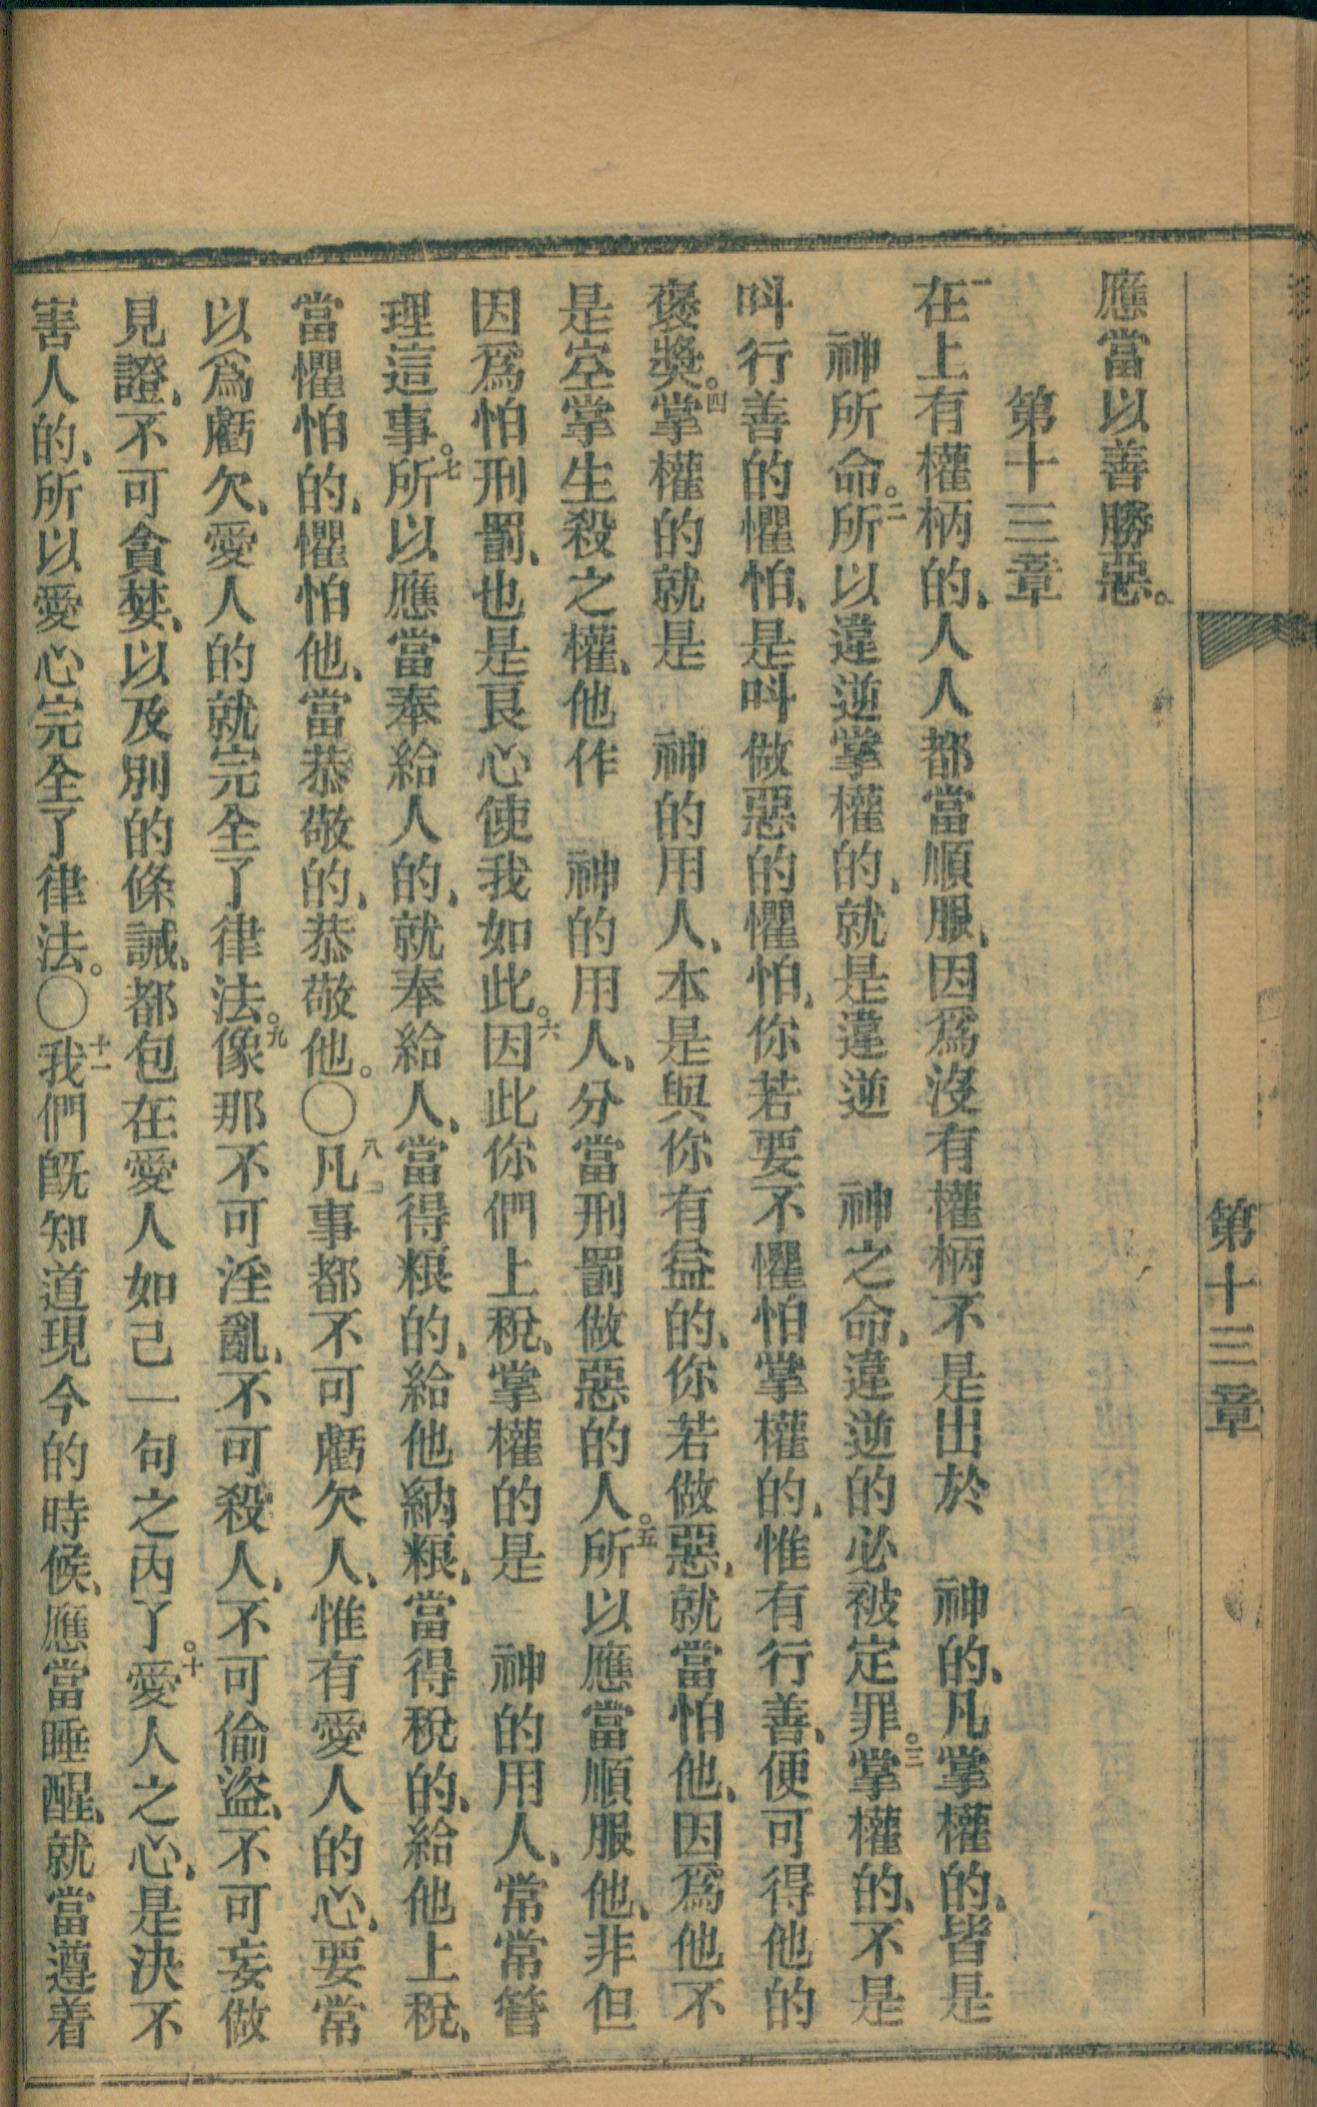 應當以善勝惡。
第十三章
一在上有權柄的、人人都當順服、因爲沒有權柄不是出於　神的、凡掌權的、皆是
神所命。二所以違逆掌權的、就是違逆　神之命、違逆的必被定罪。三掌權的、不是
呌行善的懼怕、是呌做惡的懼怕、你若要不懼怕掌權的、惟有行善、便可得他的
褒獎。四掌權的就是　神的用人、本是與你有益的、你若做惡、就當怕他、因爲他不
是空掌生殺之權、他作　神的用人、分當刑罰做惡的人。五所以應當順服他、非但
因爲怕刑罰、也是良心使我如此。六因此你們上稅、掌權的是　神的用人、常常管
理這事。七所以應當奉給人的、就奉給人、當得粮的、給他納粮、當得稅的、給他上稅、
當懼怕的、懼怕他、當恭敬的、恭敬他。〇八凡事都不可虧欠人、惟有愛人的心、要常
以爲虧欠、愛人的就完全了律法。九像那不可淫亂、不可殺人、不可偷盜、不可妄做
見證、不可貪婪、以及別的條誡、都包在愛人如己一句之內了。十愛人之心、是決不
害人的、所以愛心完全了律法。〇十一我們旣知道現今的時候、應當睡醒、就當遵着
第十三章